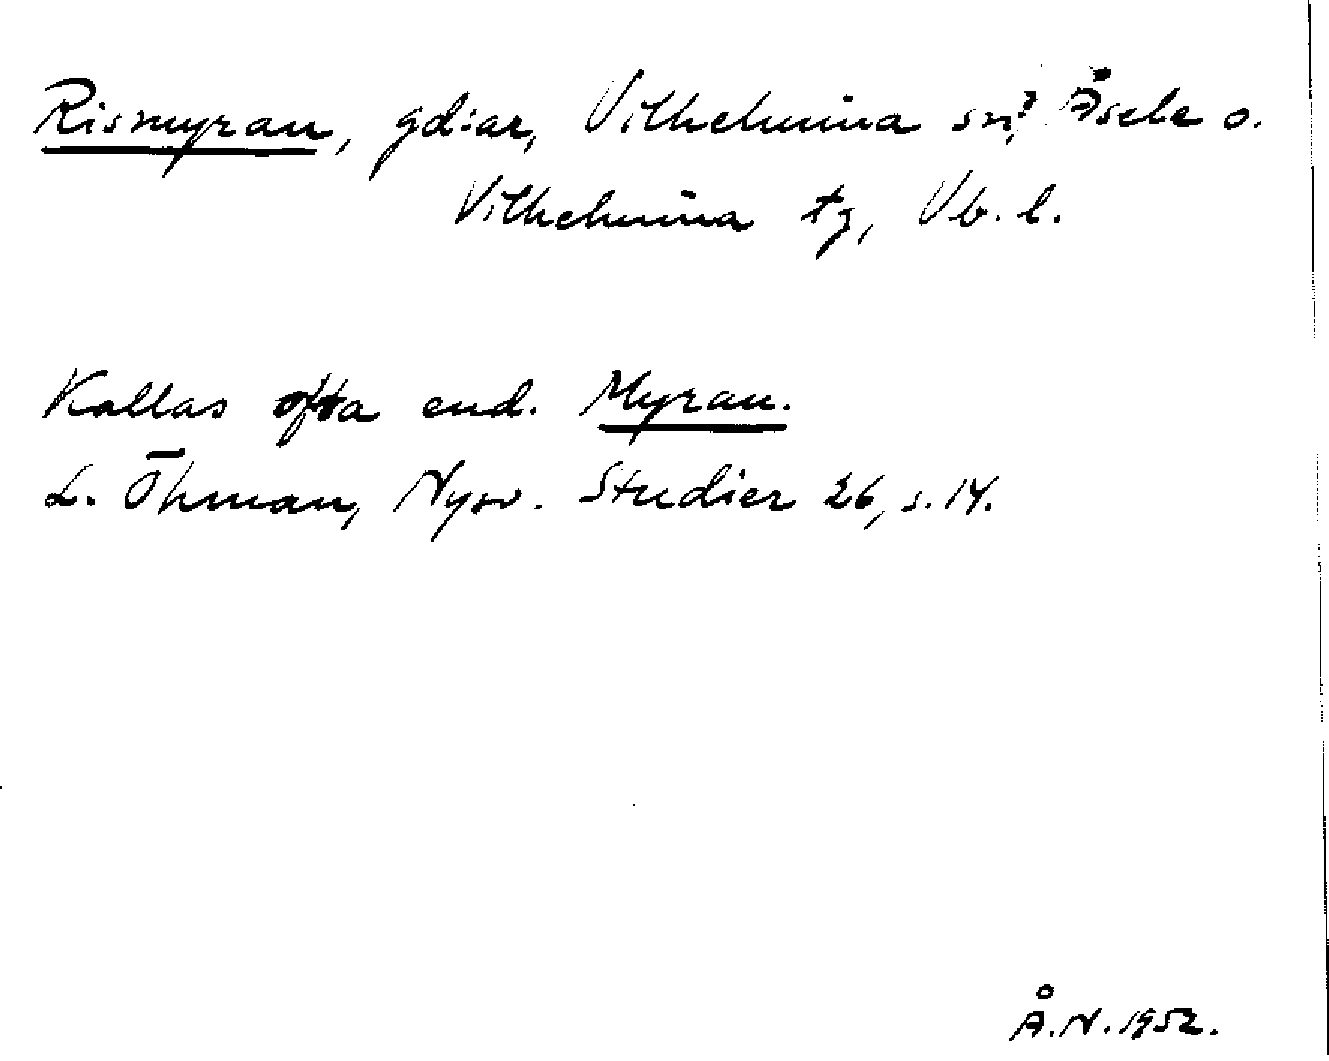 Rismyran, gd:ar, Vilhelmina sn, Åsele o.
Vilhelmina tg, Vb. l.
Kallas ofta end. Myran.
L. Öhman, Nysv. Studier 26, s. 14.
Å. N. 1952.